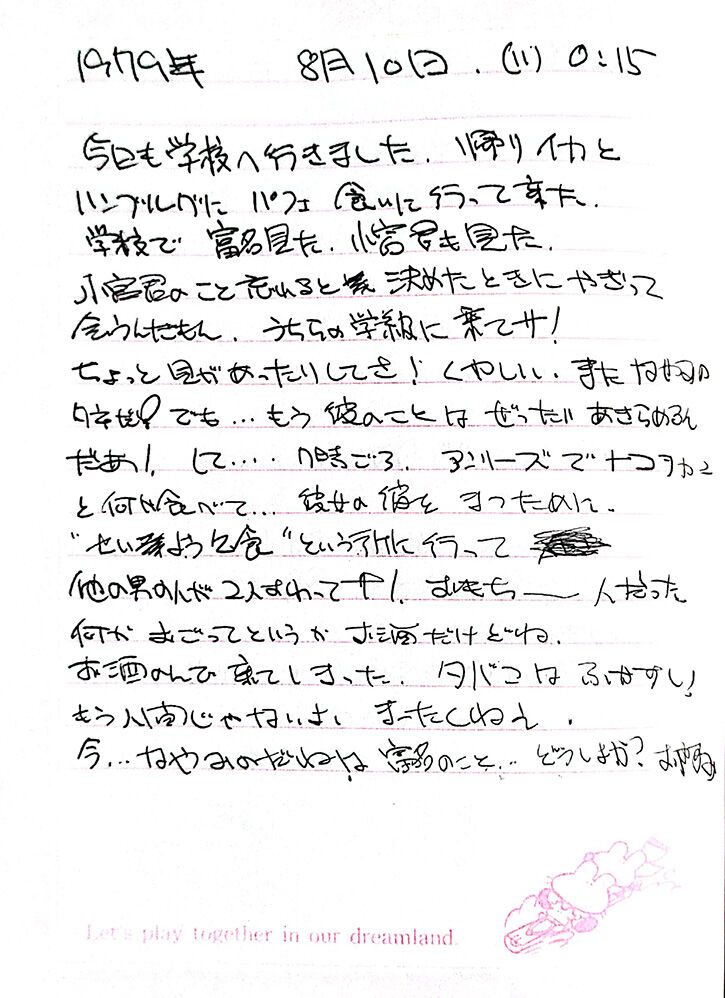 1979年 8月10日. (11) 0:15
今日も学校へ行きました. 帰り イカと
ハンブルグに パフェ 食いに行って来た.
学校で 富名見た. 小宮君も見た.
小宮君のこと忘れると 決めたときに やざって
会うんだもん. うちらの学級に 来てサ!
ちょっと 目があったりしてさ! くやしい. また
でも... もう 彼のことは ぜったい あきらめるん
だあっ!. して.... 7時ごろ. アンリーズで
と何か食べて... 彼女の彼を まつために.
という所に行って
他の男の人が 2人すわって 人だった
何か おごってというか お酒だけどね.
お酒のんで 来てしまった. タバコは ふかすし!
もう人間じゃないよ まーたくねえ.
今... なやみのたねは 富名のこと... どうしよか?
Let's play together in our dreamland.